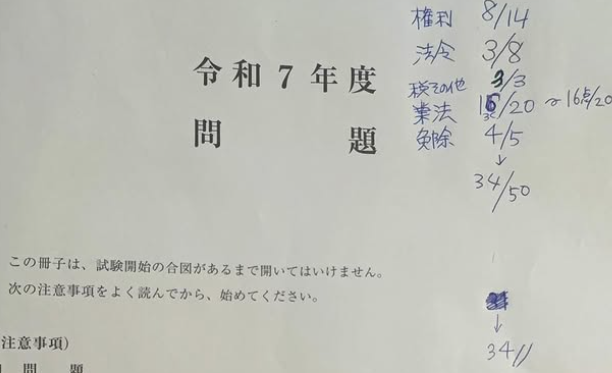 権利 8/14
法令 3/8
税その他 3/3
業法 16/20 ~16点/20
免除 4/5
↓
34/50
令和7年度
問題
この冊子は、試験開始の合図があるまで開いてはいけません。
次の注意事項をよく読んでから、始めてください。
↓
34
注意事項)
問題